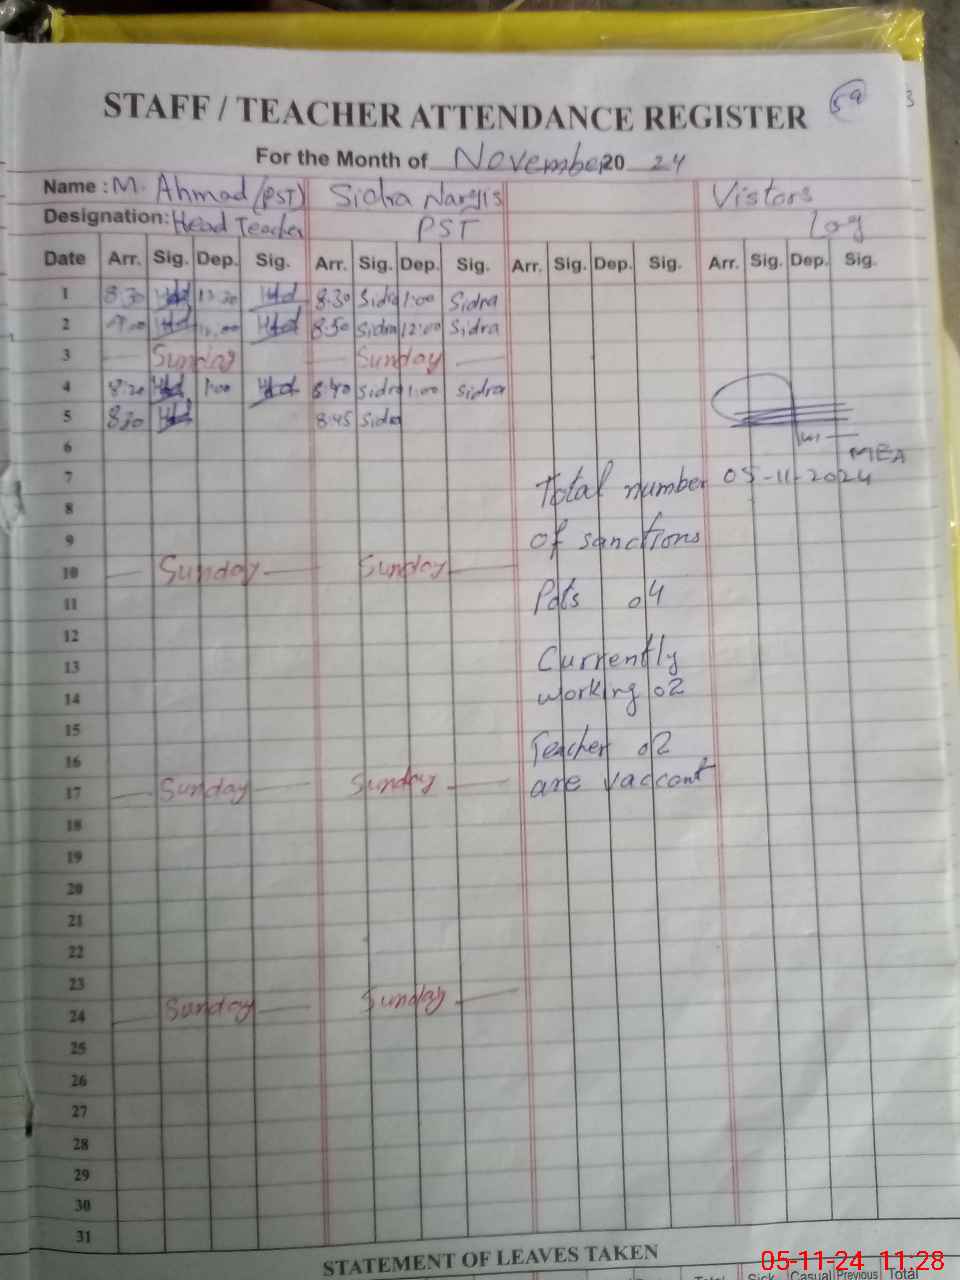 59
3
STAFF / TEACHER ATTENDANCE REGISTER
For the Month of November 20 24
Name : M. Ahmad (PST) Sidra Nargis Vistors
Designation: Head Teacher PST Log
Date Arr. Sig. Dep. Sig. Arr. Sig. Dep. Sig. Arr. Sig. Dep. Sig. Arr. Sig. Dep. Sig.
1 8:30 8:30 Sidra 1:00 Sidra
2 8:50 Sidra 12:00 Sidra
3 Sunday Sunday
4 8:20 1:00 8:40 Sidra 1:00 Sidra
5 8:30 8:45 Sidra
6 MEA
7 Total number 05-11-2024
8
9 of sanctions
10 Sunday Sunday
11 Pots 04
12
13 Currently
14 working 02
15
16 Teacher 02
17 Sunday Sunday are vaccant
18
19
20
21
22
23
24 Sunday Sunday
25
26
27
28
29
30
31
STATEMENT OF LEAVES TAKEN
Total Sick Casual Previous Total
05-11-24 11:28